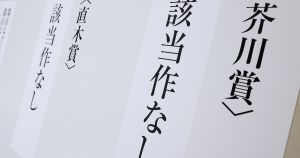 芥川賞〉
該当作なし
〈直木賞〉
該当作なし